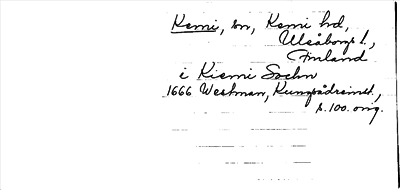 Kemi, sn, Kemi hd,
Uleåborgs l.,
Finland
i Kiemi Sochn
1666 Westman, Kungsådrainst.,
s. 100. orig.